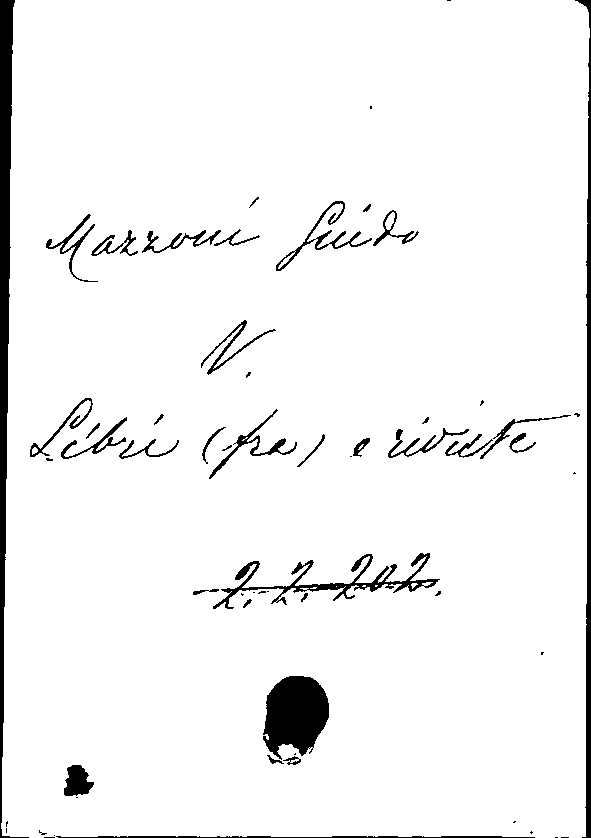 Mazzoni Guido
V.
Libri (fra) e riviste
2. 2. 202.